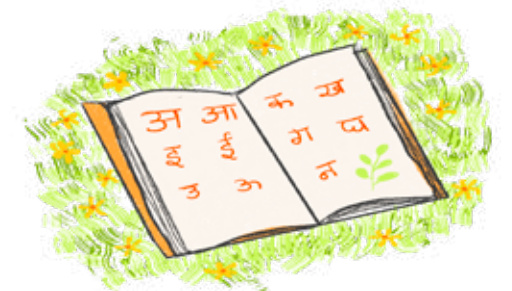 अ आ
इ ई
उ ऊ
क ख
ग घ
न